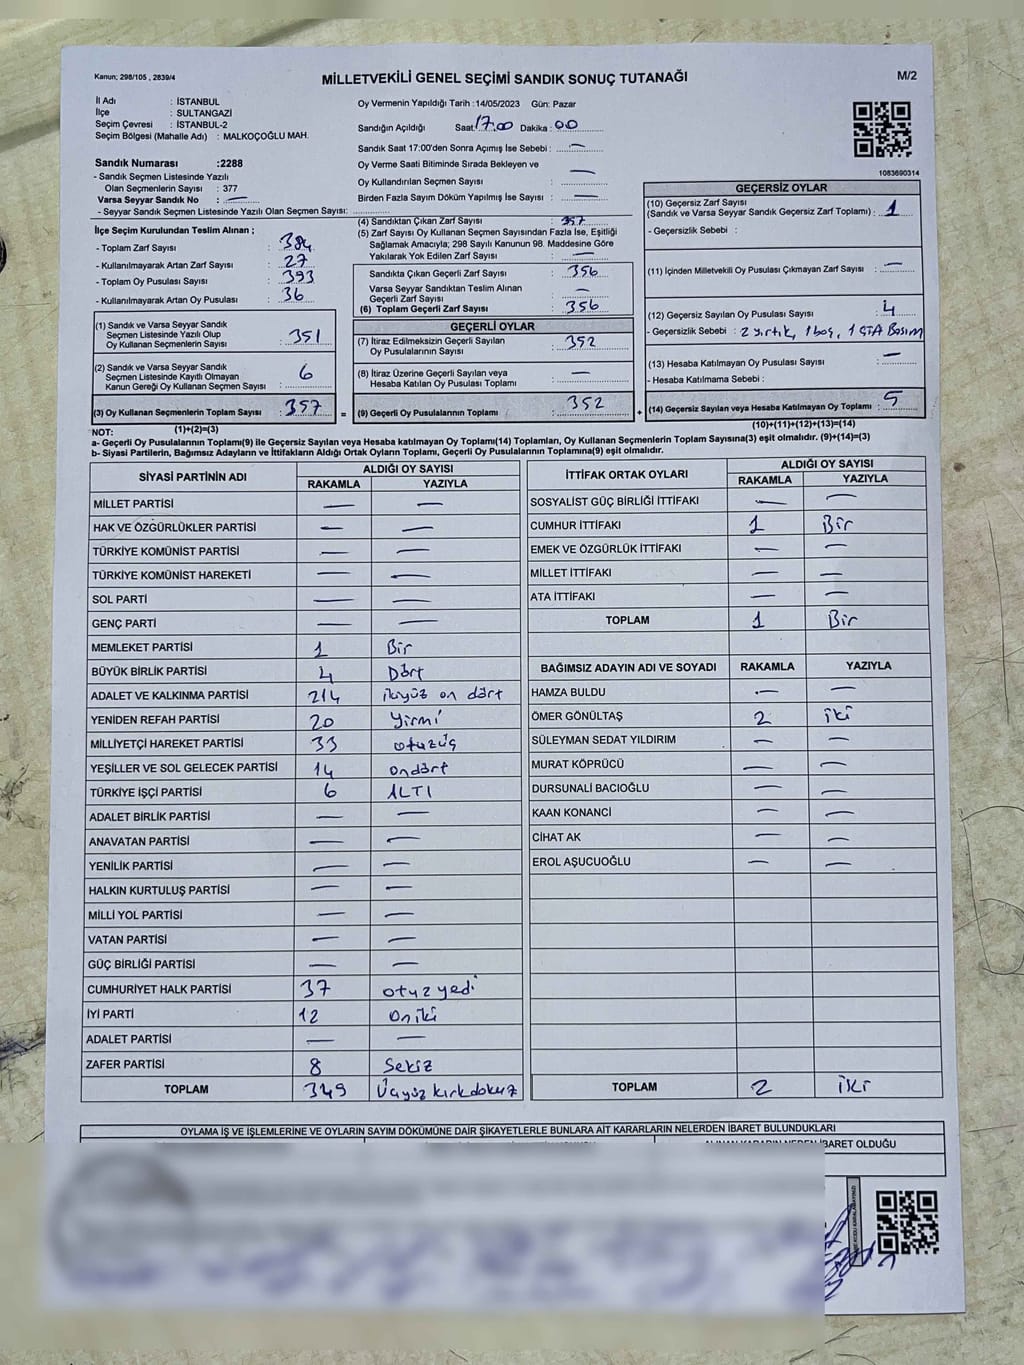 Kanun; 298/105 , 2839/4
MİLLETVEKİLİ GENEL SEÇİMİ SANDIK SONUÇ TUTANAĞI
M/2
İl Adı : İSTANBUL
İlçe : SULTANGAZİ
Seçim Çevresi : İSTANBUL-2
Seçim Bölgesi (Mahalle Adı) : MALKOÇOĞLU MAH.
Sandık Numarası :2288
- Sandık Seçmen Listesinde Yazılı
Olan Seçmenlerin Sayısı : 377
Varsa Seyyar Sandık No : —
- Seyyar Sandık Seçmen Listesinde Yazılı Olan Seçmen Sayısı:
Oy Vermenin Yapıldığı Tarih :14/05/2023 Gün: Pazar
Sandığın Açıldığı Saat: 17.00 Dakika : 00
Sandık Saat 17:00'den Sonra Açımış İse Sebebi : —
Oy Verme Saati Bitiminde Sırada Bekleyen ve
Oy Kullandırılan Seçmen Sayısı : —
Birden Fazla Sayım Döküm Yapılmış İse Sayısı : —
1083690314
İlçe Seçim Kurulundan Teslim Alınan ;
- Toplam Zarf Sayısı : 384
- Kullanılmayarak Artan Zarf Sayısı : 27
- Toplam Oy Pusulası : 393
- Kullanılmayarak Artan Oy Pusulası : 36
(1) Sandık ve Varsa Seyyar Sandık
Seçmen Listesinde Yazılı Olup
Oy Kullanan Seçmenlerin Sayısı : 351
(2) Sandık ve Varsa Seyyar Sandık
Seçmen Listesinde Kayıtlı Olmayan
Kanun Gereği Oy Kullanan Seçmen Sayısı : 6
(3) Oy Kullanan Seçmenlerin Toplam Sayısı : 357 =
(1)+(2)=(3)
(4) Sandıktan Çıkan Zarf Sayısı : 357
(5) Zarf Sayısı Oy Kullanan Seçmen Sayısından Fazla İse, Eşitliği
Sağlamak Amacıyla; 298 Sayılı Kanunun 98. Maddesine Göre
Yakılarak Yok Edilen Zarf Sayısı : —
Sandıkta Çıkan Geçerli Zarf Sayısı : 356
Varsa Seyyar Sandıktan Teslim Alınan
Geçerli Zarf Sayısı : —
(6) Toplam Geçerli Zarf Sayısı : 356
GEÇERLİ OYLAR
(7) İtiraz Edilmeksizin Geçerli Sayılan
Oy Pusulalarının Sayısı : 352
(8) İtiraz Üzerine Geçerli Sayılan veya
Hesaba Katılan Oy Pusulası Toplamı : —
(9) Geçerli Oy Pusulalarının Toplamı : 352 +
GEÇERSİZ OYLAR
(10) Geçersiz Zarf Sayısı
(Sandık ve Varsa Seyyar Sandık Geçersiz Zarf Toplamı) : 1
- Geçersizlik Sebebi :
(11) İçinden Milletvekili Oy Pusulası Çıkmayan Zarf Sayısı : —
(12) Geçersiz Sayılan Oy Pusulası Sayısı : 4
- Geçersizlik Sebebi : 2 yırtık, 1 boş, 1 ÇİFT Basım
(13) Hesaba Katılmayan Oy Pusulası Sayısı : —
- Hesaba Katılmama Sebebi :
(14) Geçersiz Sayılan veya Hesaba Katılmayan Oy Toplamı : 5
(10)+(11)+(12)+(13)=(14)
NOT:
a- Geçerli Oy Pusulalarının Toplamı(9) ile Geçersiz Sayılan veya Hesaba katılmayan Oy Toplamı(14) Toplamları, Oy Kullanan Seçmenlerin Toplam Sayısına(3) eşit olmalıdır. (9)+(14)=(3)
b- Siyasi Partilerin, Bağımsız Adayların ve İttifakların Aldığı Ortak Oyların Toplamı, Geçerli Oy Pusulalarının Toplamına(9) eşit olmalıdır.
SİYASİ PARTİNİN ADI ALDIĞI OY SAYISI
RAKAMLA YAZIYLA
MİLLET PARTİSİ — —
HAK VE ÖZGÜRLÜKLER PARTİSİ — —
TÜRKİYE KOMÜNİST PARTİSİ — —
TÜRKİYE KOMÜNİST HAREKETİ — —
SOL PARTİ — —
GENÇ PARTİ — —
MEMLEKET PARTİSİ 1 Bir
BÜYÜK BİRLİK PARTİSİ 4 Dört
ADALET VE KALKINMA PARTİSİ 214 ikiyüz on dört
YENİDEN REFAH PARTİSİ 20 Yirmi
MİLLİYETÇİ HAREKET PARTİSİ 33 otuzüç
YEŞİLLER VE SOL GELECEK PARTİSİ 14 ondört
TÜRKİYE İŞÇİ PARTİSİ 6 ALTI
ADALET BİRLİK PARTİSİ — —
ANAVATAN PARTİSİ — —
YENİLİK PARTİSİ — —
HALKIN KURTULUŞ PARTİSİ — —
MİLLİ YOL PARTİSİ — —
VATAN PARTİSİ — —
GÜÇ BİRLİĞİ PARTİSİ — —
CUMHURİYET HALK PARTİSİ 37 otuz yedi
İYİ PARTİ 12 Oniki
ADALET PARTİSİ — —
ZAFER PARTİSİ 8 Sekiz
TOPLAM 349 Üçyüz kırkdokuz
İTTİFAK ORTAK OYLARI ALDIĞI OY SAYISI
RAKAMLA YAZIYLA
SOSYALİST GÜÇ BİRLİĞİ İTTİFAKI — —
CUMHUR İTTİFAKI 1 Bir
EMEK VE ÖZGÜRLÜK İTTİFAKI — —
MİLLET İTTİFAKI — —
ATA İTTİFAKI — —
TOPLAM 1 Bir
BAĞIMSIZ ADAYIN ADI VE SOYADI RAKAMLA YAZIYLA
HAMZA BULDU — —
ÖMER GÖNÜLTAŞ 2 iki
SÜLEYMAN SEDAT YILDIRIM — —
MURAT KÖPRÜCÜ — —
DURSUNALİ BACIOĞLU — —
KAAN KONANCİ — —
CİHAT AK — —
EROL AŞUCUOĞLU — —
TOPLAM 2 iki
OYLAMA İŞ VE İŞLEMLERİNE VE OYLARIN SAYIM DÖKÜMÜNE DAİR ŞİKAYETLERLE BUNLARA AİT KARARLARIN NELERDEN İBARET BULUNDUKLARI
ALINAN KARARIN NEDEN İBARET OLDUĞU